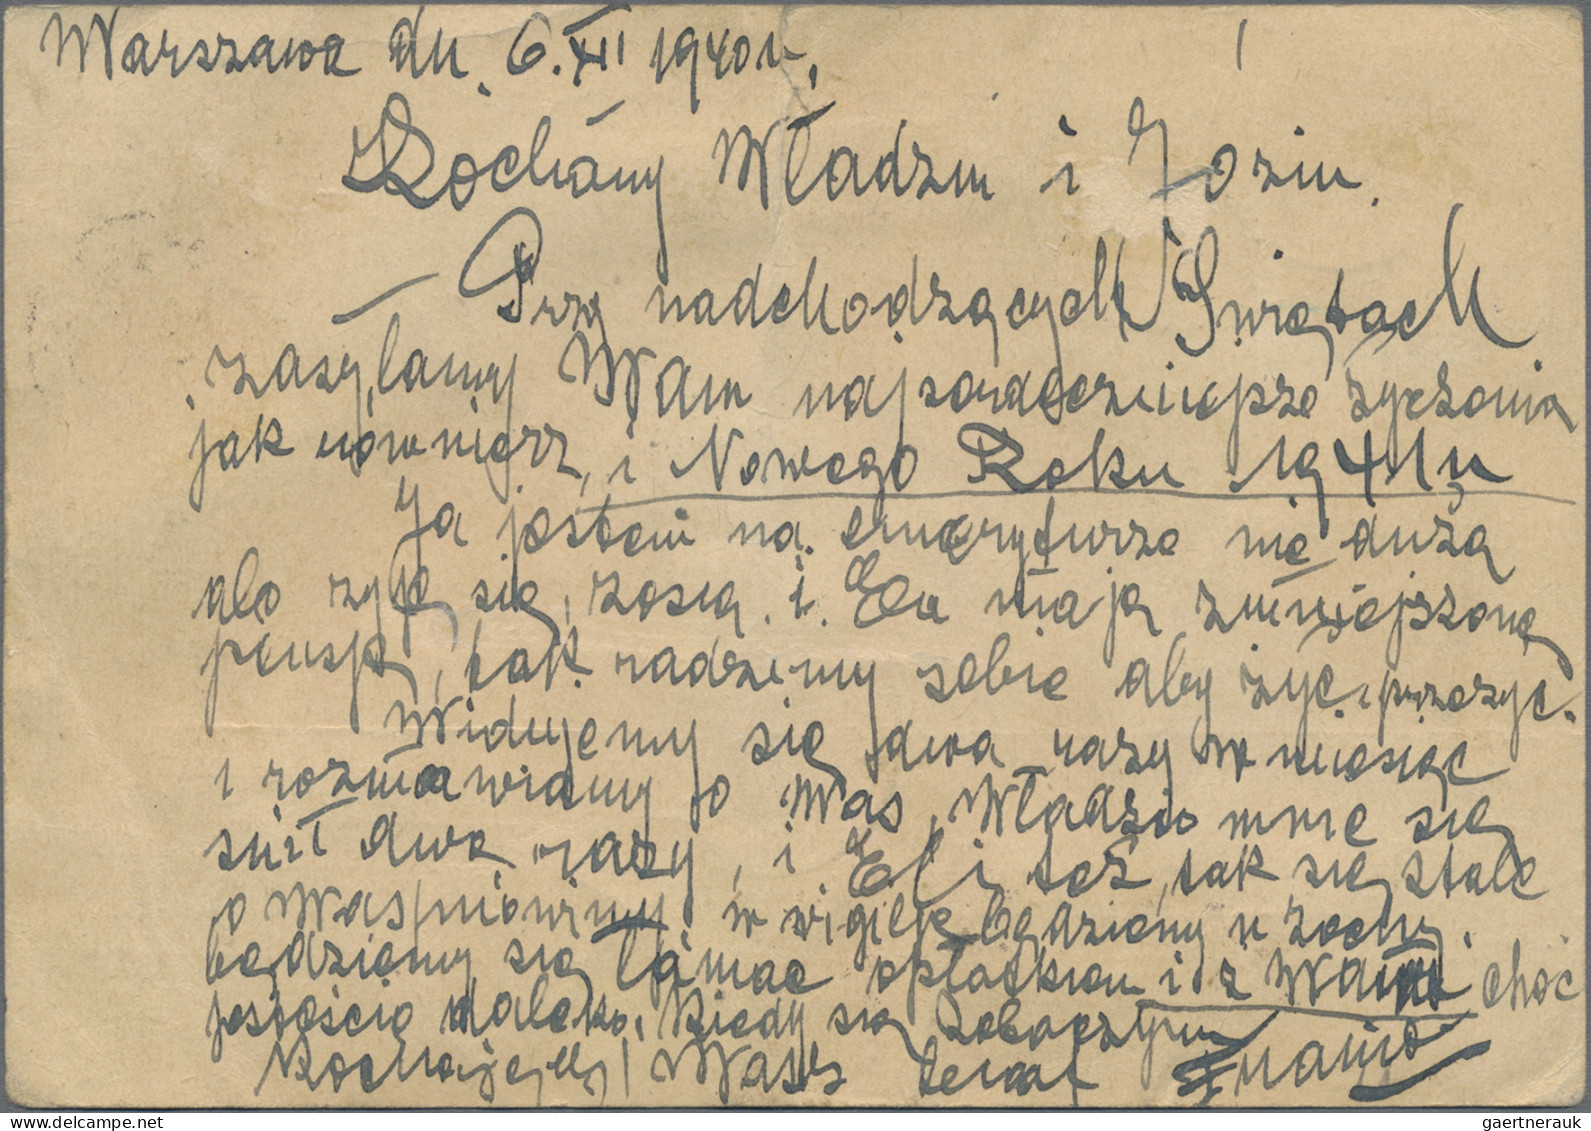 Warszawa dn. 6.XII 1940 r.
Kochany Władziu i Joziu.
Przy nadchodzących Swiętach
zasylamy Wam najserdeczniejsze życzenia
jak rówmierz, i Nowego Roku 1941 r
Ja jestem na emeryturze nie dużą
ale żyje się, Zosia i Ela mają zmniejszoną
pensje, tak radzimy sobie aby żyć i przeżyć.
Widujemy się dwa razy w miesiąc
i rozmawiamy o Was, Władzio mnie się
snił dwa razy, i Eli też, tak się stale
o Was mówimy w wigilje będziemy u Zochy.
będziemy się łamac opłatkiem i z Wami choć
jesteście daleko. Kiedy się zobaczym
Kochający Was